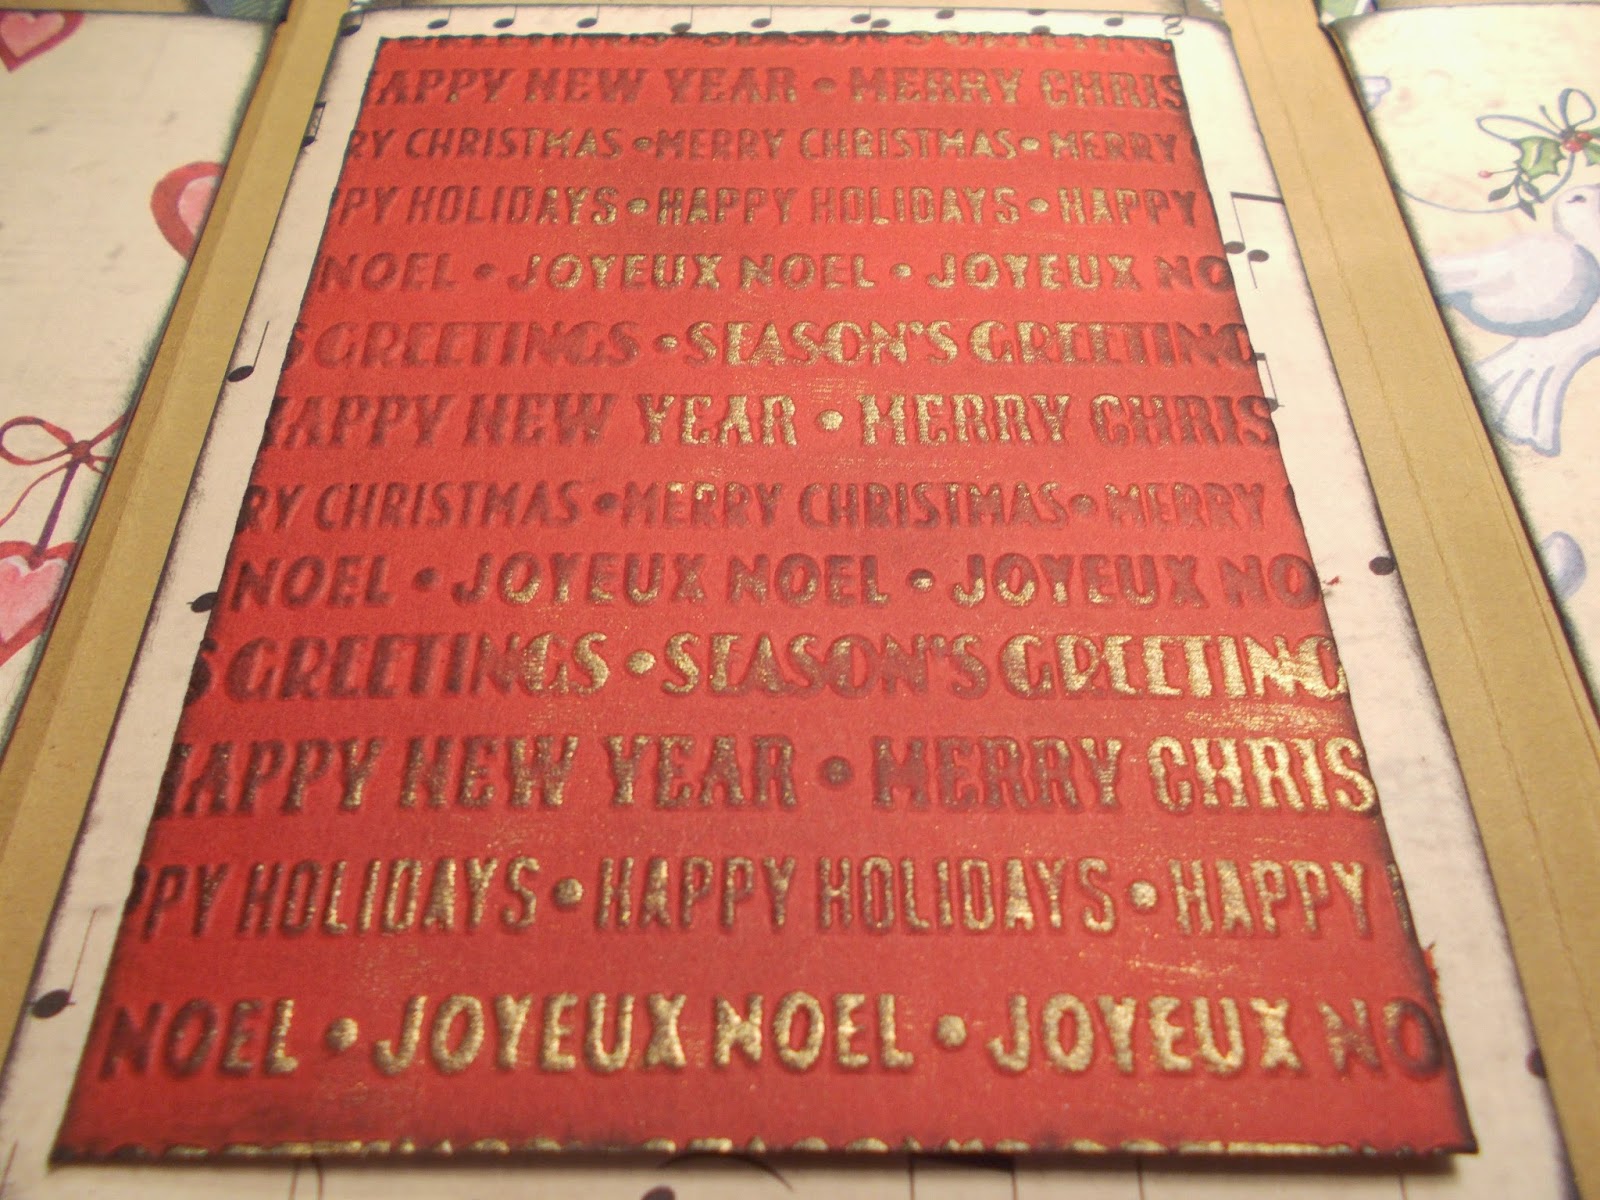 GREETINGS • SEASON'S GREETING
HAPPY NEW YEAR • MERRY CHRIS
RY CHRISTMAS • MERRY CHRISTMAS • MERRY
PPY HOLIDAYS • HAPPY HOLIDAYS • HAPPY
NOEL • JOYEUX NOEL • JOYEUX NO
S GREETINGS • SEASON'S GREETING
HAPPY NEW YEAR • MERRY CHRIS
RY CHRISTMAS • MERRY CHRISTMAS • MERRY
NOEL • JOYEUX NOEL • JOYEUX NO
S GREETINGS • SEASON'S GREETING
HAPPY NEW YEAR • MERRY CHRIS
PPY HOLIDAYS • HAPPY HOLIDAYS • HAPPY
NOEL • JOYEUX NOEL • JOYEUX NO